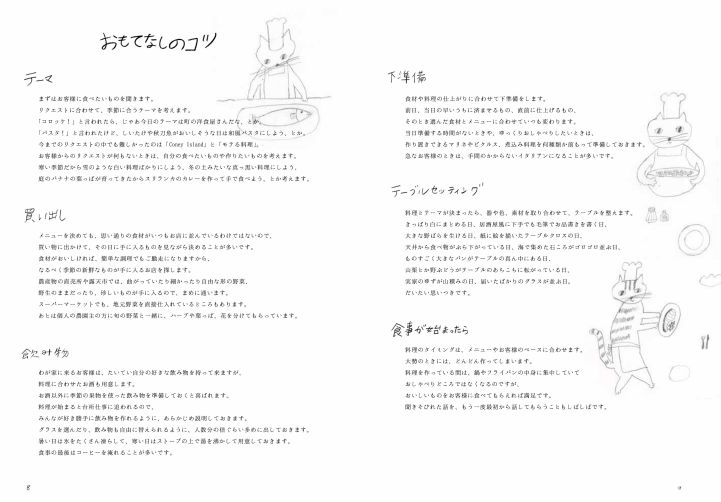 おもてなしのコツ
テーマ
まずはお客様に食べたいものを聞きます。
リクエストに合わせて、季節に合うテーマを考えます。
「コロッケ！」と言われたら、じゃあ今日のテーマは町の洋食屋さんだな、とか。
「パスタ！」と言われたけど、しいたけや秋刀魚がおいしそうな日は和風パスタにしよう、とか。
今までのリクエストの中でも難しかったのは「Coney Island」と「モテる料理」。
お客様からのリクエストが何もないときは、自分の食べたいものや作りたいものを考えます。
寒い季節だから雪のような白い料理ばかりにしよう、冬の土みたいな真っ黒い料理にしよう、
庭のバナナの葉っぱが育ってきたからスリランカのカレーを作って手で食べよう、とか考えます。
買い出し
メニューを決めても、思い通りの食材がいつもお店に並んでいるわけではないので、
買い物に出かけて、その日に手に入るものを見ながら決めることが多いです。
食材がおいしければ、簡単な調理でもご馳走になりますから、
なるべく季節の新鮮なものが手に入るお店を探します。
農産物の直売所や露天市では、曲がっていたり細かったり自由な形の野菜、
野生のままだったり、珍しいものが手に入るので、まめに通います。
スーパーマーケットでも、地元野菜を直接仕入れているところもあります。
あとは個人の農園主の方に旬の野菜と一緒に、ハーブや葉っぱ、花を分けてもらっています。
飲み物
わが家に来るお客様は、たいてい自分の好きな飲み物を持って来ますが、
料理に合わせたお酒も用意します。
お酒以外に季節の果物を使った飲み物を準備しておくと喜ばれます。
料理が始まると台所仕事に追われるので、
みんなが好き勝手に飲み物を作れるように、あらかじめ説明しておきます。
グラスを選んだり、飲み物も自由に替えられるように、人数分の倍ぐらい多めに出しておきます。
暑い日は氷をたくさん凍らして、寒い日はストーブの上で湯を沸かして用意しておきます。
食事の最後はコーヒーを淹れることが多いです。
8
下準備
食材や料理の仕上がりに合わせて下準備をします。
前日、当日の早いうちに済ませるもの、直前に仕上げるもの、
そのとき選んだ食材とメニューに合わせていつも変わります。
当日準備する時間がないときや、ゆっくりおしゃべりしたいときは、
作り置きできるマリネやピクルス、煮込み料理を何種類か前もって準備しておきます。
急なお客様のときは、手間のかからないイタリアンになることが多いです。
テーブルセッティング
料理とテーマが決まったら、器や色、素材を取り合わせて、テーブルを整えます。
きっぱり白にまとめる日、居酒屋風に下手でも毛筆でお品書きを書く日、
大きな野ばらを生ける日、紙に絵を描いたテーブルクロスの日、
天井から食べ物がぶら下がっている日、海で集めた石ころがゴロゴロ並ぶ日、
ものすごく大きなパンがテーブルの真ん中にある日、
山栗とか野ぶどうがテーブルのあちらこちに転がっている日、
実家のゆずが山積みの日、届いたばかりのグラスが並ぶ日。
だいたい思いつきです。
食事が始まったら
料理のタイミングは、メニューやお客様のペースに合わせます。
大勢のときには、どんどん作ってしまいます。
料理を作っている間は、鍋やフライパンの中身に集中していて
おしゃべりどころではなくなるのですが、
おいしいものをお客様に食べてもらえれば満足です。
聞きそびれた話を、もう一度最初から話してもらうこともしばしばです。